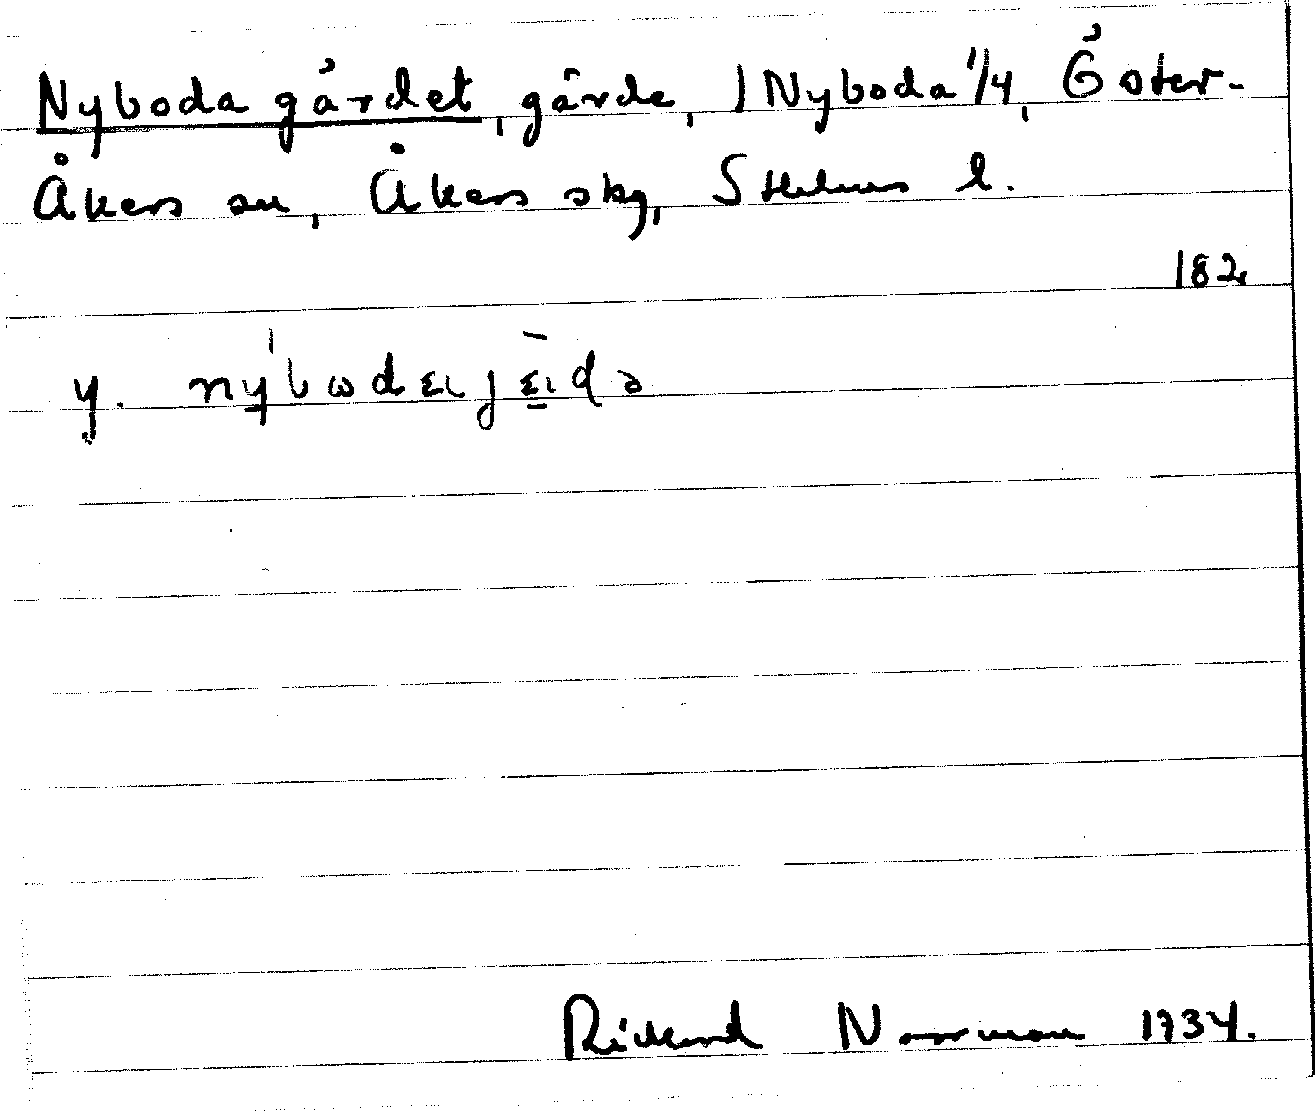 Nyboda gärdet, gärde, 1 Nyboda 1/4, Öster-
Åkers sn, Åkers skg, Sthlms l.
182
y. nýbωdɛɩjɛ̀ɩdə
Rickard Norrman 1934.